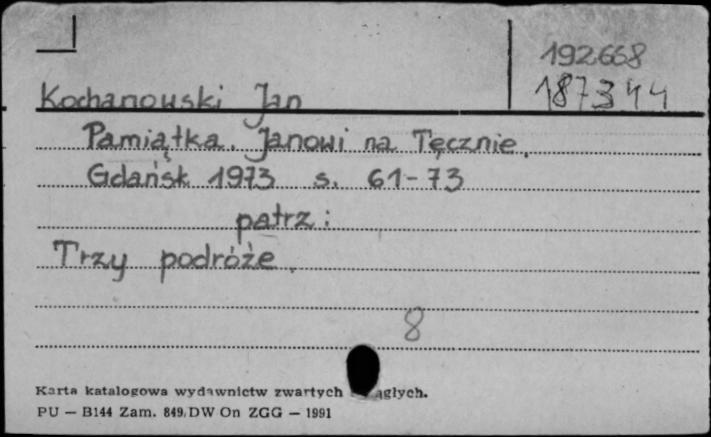 192668
187344
Kochanowski Jan
Pamiątka. Janowi na Tęcznie.
Gdańsk 1973 s. 61-73
patrz:
Trzy podróże.
8
Karta katalogowa wydawnictw zwartych
PU — B144 Zam. 849/DW On ZGG — 1991